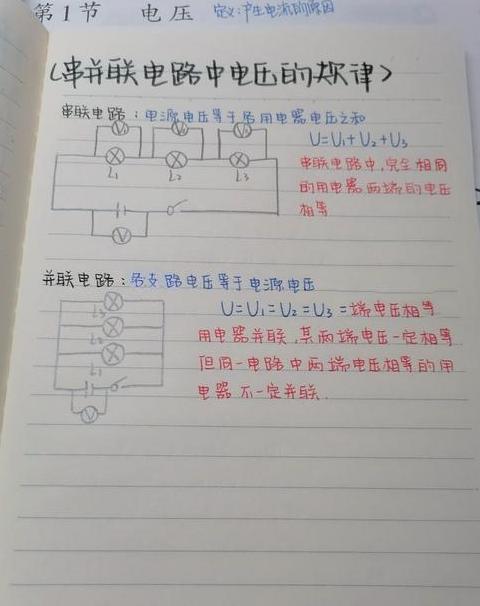 第1节 电压 定义:产生电流的原因
(串并联电路中电压的规律)
串联电路:电源电压等于各用电器电压之和
U=U₁+U₂+U₃
串联电路中,完全相同
的用电器两端的电压
相等
V₁ V₂ V₃
L₁ L₂ L₃
V
并联电路:各支路电压等于电源电压
U=U₁=U₂=U₃=端电压相等
用电器并联,其两端电压一定相等
但同一电路中两端电压相等的用
电器不一定并联.
L₃
L₂
L₁
V